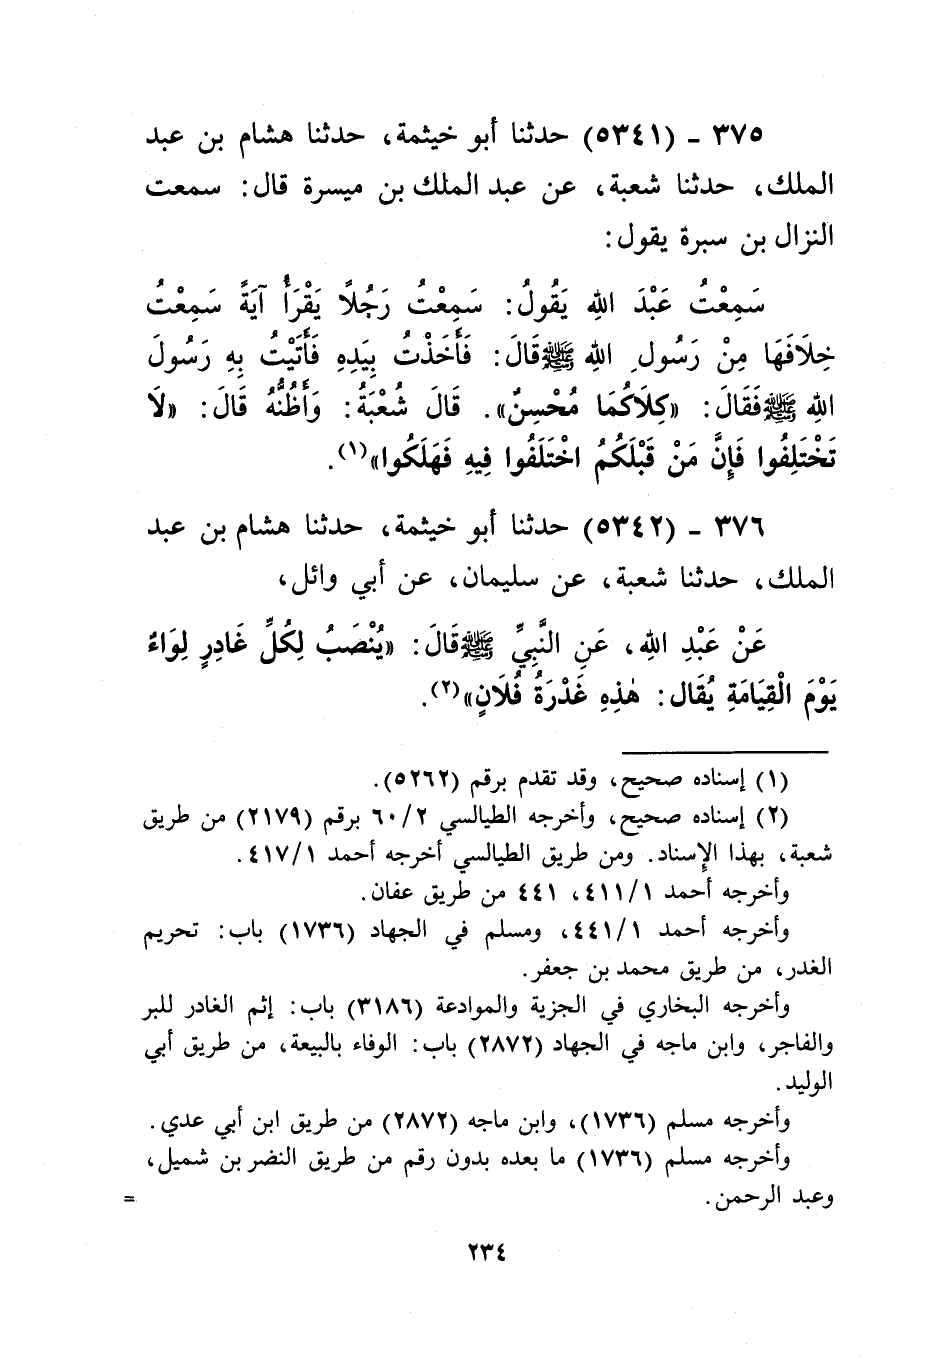 ٣٧٥ - (٥٣٤١) حدثنا أبو خيثمة، حدثنا هشام بن عبد
الملك، حدثنا شعبة، عن عبد الملك بن ميسرة قال: سمعت
النزال بن سبرة يقول:
سَمِعْتُ عَبْدَ اللهِ يَقُولُ: سَمِعْتُ رَجُلًا يَقْرَأُ آيَةً سَمِعْتُ
خِلَافَهَا مِنْ رَسُولِ اللهِ ﷺ قَالَ: فَأَخَذْتُ بِيَدِهِ فَأَتَيْتُ بِهِ رَسُولَ
اللهِ ﷺ فَقَالَ: «كِلَاكُمَا مُحْسِنٌ». قَالَ شُعْبَةُ: وَأَظُنُّهُ قَالَ: «لَا
تَخْتَلِفُوا فَإِنَّ مَنْ قَبْلَكُمُ اخْتَلَفُوا فِيهِ فَهَلَكُوا»(١).
٣٧٦ - (٥٣٤٢) حدثنا أبو خيثمة، حدثنا هشام بن عبد
الملك، حدثنا شعبة، عن سليمان، عن أبي وائل،
عَنْ عَبْدِ اللهِ، عَنِ النَّبِيِّ ﷺ قَالَ: «يُنْصَبُ لِكُلِّ غَادِرٍ لِوَاءٌ
يَوْمَ الْقِيَامَةِ يُقَال: هٰذِهِ غَدْرَةُ فُلَانٍ»(٢).
(١) إسناده صحيح، وقد تقدم برقم (٥٢٦٢).
(٢) إسناده صحيح، وأخرجه الطيالسي ٦٠/٢ برقم (٢١٧٩) من طريق
شعبة، بهذا الإسناد. ومن طريق الطيالسي أخرجه أحمد ٤١٧/١.
وأخرجه أحمد ٤١١/١، ٤٤١ من طريق عفان.
وأخرجه أحمد ٤٤١/١، ومسلم في الجهاد (١٧٣٦) باب: تحريم
الغدر، من طريق محمد بن جعفر.
وأخرجه البخاري في الجزية والموادعة (٣١٨٦) باب: إثم الغادر للبر
والفاجر، وابن ماجه في الجهاد (٢٨٧٢) باب: الوفاء بالبيعة، من طريق أبي
الوليد.
وأخرجه مسلم (١٧٣٦)، وابن ماجه (٢٨٧٢) من طريق ابن أبي عدي.
وأخرجه مسلم (١٧٣٦) ما بعده بدون رقم من طريق النضر بن شميل،
وعبد الرحمن. =
٢٣٤